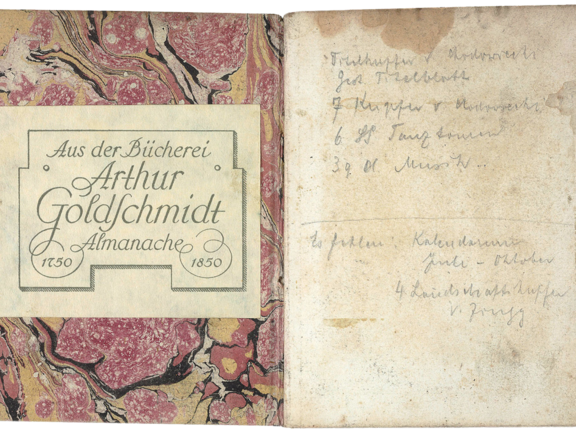 Aus der Bücherei
Arthur
Goldschmidt
Almanache
1750 1850
Titelkupfer v Chodowiecki
Gest. Titelblatt
7 Kupfer v Chodowiecki
6 SS Tanztouren
Musik
Es fehlen: Kalendarium
Juli - Oktober
4 Landschaftskupfer
v.